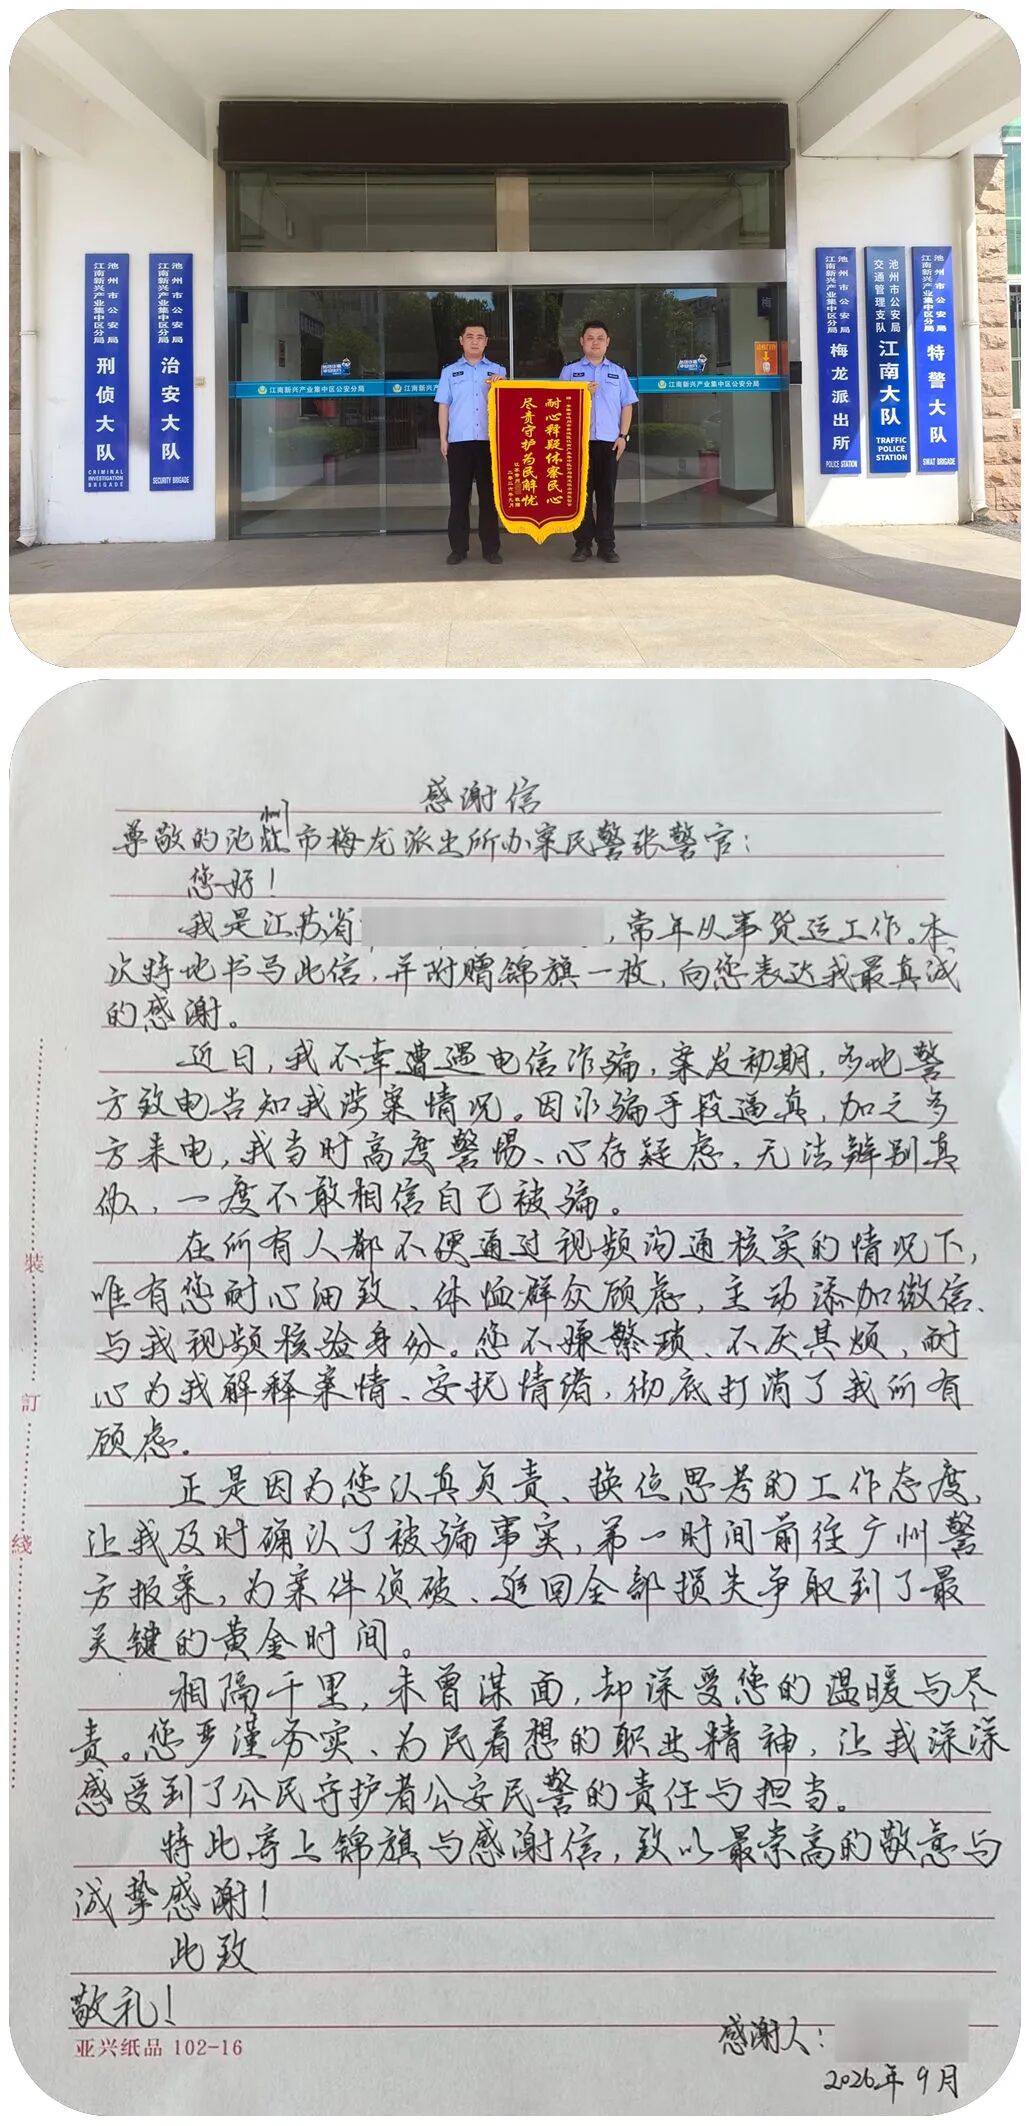 池州市公安局
江南新兴产业集中区分局
刑侦大队
CRIMINAL
INVESTIGATION
BRIGADE
池州市公安局
江南新兴产业集中区分局
治安大队
SECURITY BRIGADE
江南新兴产业集中区公安分局
江南新兴产业集中区公安分局
耐心释疑体察民心
尽责守护为民解忧
二零二六年九月
池州市公安局
江南新兴产业集中区分局
梅龙派出所
POLICE STATION
池州市公安局
交通管理支队
江南大队
TRAFFIC
POLICE
STATION
池州市公安局
江南新兴产业集中区分局
特警大队
SWAT BRIGADE
感谢信
尊敬的池州市梅龙派出所办案民警张警官：
您好！
我是江苏省，常年从事货运工作。本
次特地书写此信，并附赠锦旗一枚，向您表达我最真诚
的感谢。
近日，我不幸遭遇电信诈骗，案发初期，多地警
方致电告知我涉案情况。因诈骗手段逼真，加之多
方来电，我当时高度警惕、心存疑虑，无法辨别真
伪、一度不敢相信自己被骗。
在所有人都不便通过视频沟通核实的情况下，
唯有您耐心细致、体恤群众顾虑，主动添加微信、
与我视频核验身份。您不嫌繁琐、不厌其烦，耐
心为我解释案情、安抚情绪，彻底打消了我所有
顾虑。
正是因为您认真负责、换位思考的工作态度，
让我及时确认了被骗事实，第一时间前往广州警
方报案，为案件侦破、追回全部损失争取到了最
关键的黄金时间。
相隔千里，未曾谋面，却深受您的温暖与尽
责。您严谨务实、为民着想的职业精神，让我深深
感受到了公民守护者公安民警的责任与担当。
特此寄上锦旗与感谢信，致以最崇高的敬意与
诚挚感谢！
此致
敬礼！
感谢人：
2026年9月
亚兴纸品 102-16
装
訂
綫